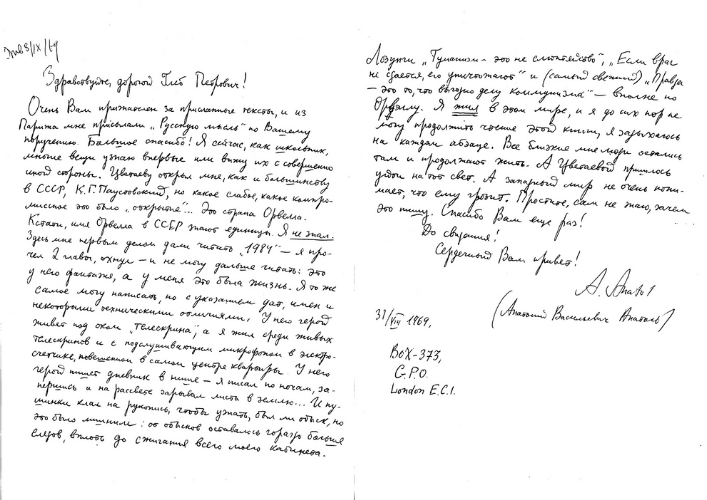 Здравствуйте, дорогой Глеб Петрович!
Очень Вам признателен за присланные тексты, и из
Парижа мне присылали „Русскую мысль“ по Вашему
поручению. Большое спасибо! Я сейчас, как школьник,
многие вещи узнаю впервые или вижу их с совершенно
иной стороны. Цветаеву открыл мне, как и большинству
в СССР, К.Г. Паустовский, но какое слабое, какое компро-
миссное это было „открытие“... Это страна Орвела.
Кстати, имя Орвела в СССР знают единицы. Я не знал.
Здесь мне первым делом дали читать „1984“ — я про-
чел 2 главы, охнул — и не могу дальше читать: это
у него фантазия, а у меня это была жизнь. Я то же
самое могу написать, но с указанием дат, имен и
некоторыми техническими отличиями. У него герой
живет под оком „телескрина“, а я жил среди живых
телескринов и с подслушивающим микрофоном в электро-
счетчике, повешенном в самом центре квартиры. У него
герой пишет дневник в нише — я писал по ночам, за-
першись и на рассвете зарывал листы в землю... И пу-
шинки клал на рукопись, чтобы узнать, был ли обыск, но
это было лишним: от обысков оставалось гораздо больше
следов, вплоть до сжигания всего моего кабинета.
Лозунги „Туманизм - это не слюнтяйство“, „Если враг
не сдается, его уничтожают“ и (самый свежий) „Правда
— это то, что выгодно делу коммунизма“ — вполне по
Орвелу. Я жил в этом мире, и я до сих пор не
могу продолжить чтение этой книги, я задыхаюсь
на каждом абзаце. Все близкие мне люди остались
там и продолжают жить. А Цветаевой пришлось
уйти на тот свет. А западный мир не очень пони-
мает, что ему грозит. Простите, сам не знаю, зачем
это пишу. Спасибо Вам еще раз!
До свидания!
Сердечный Вам привет!
А. Анатол
31/VIII 1969.
(Анатолий Васильевич Анатоль)
BOX-373,
G.P.O.
London E.C.1.